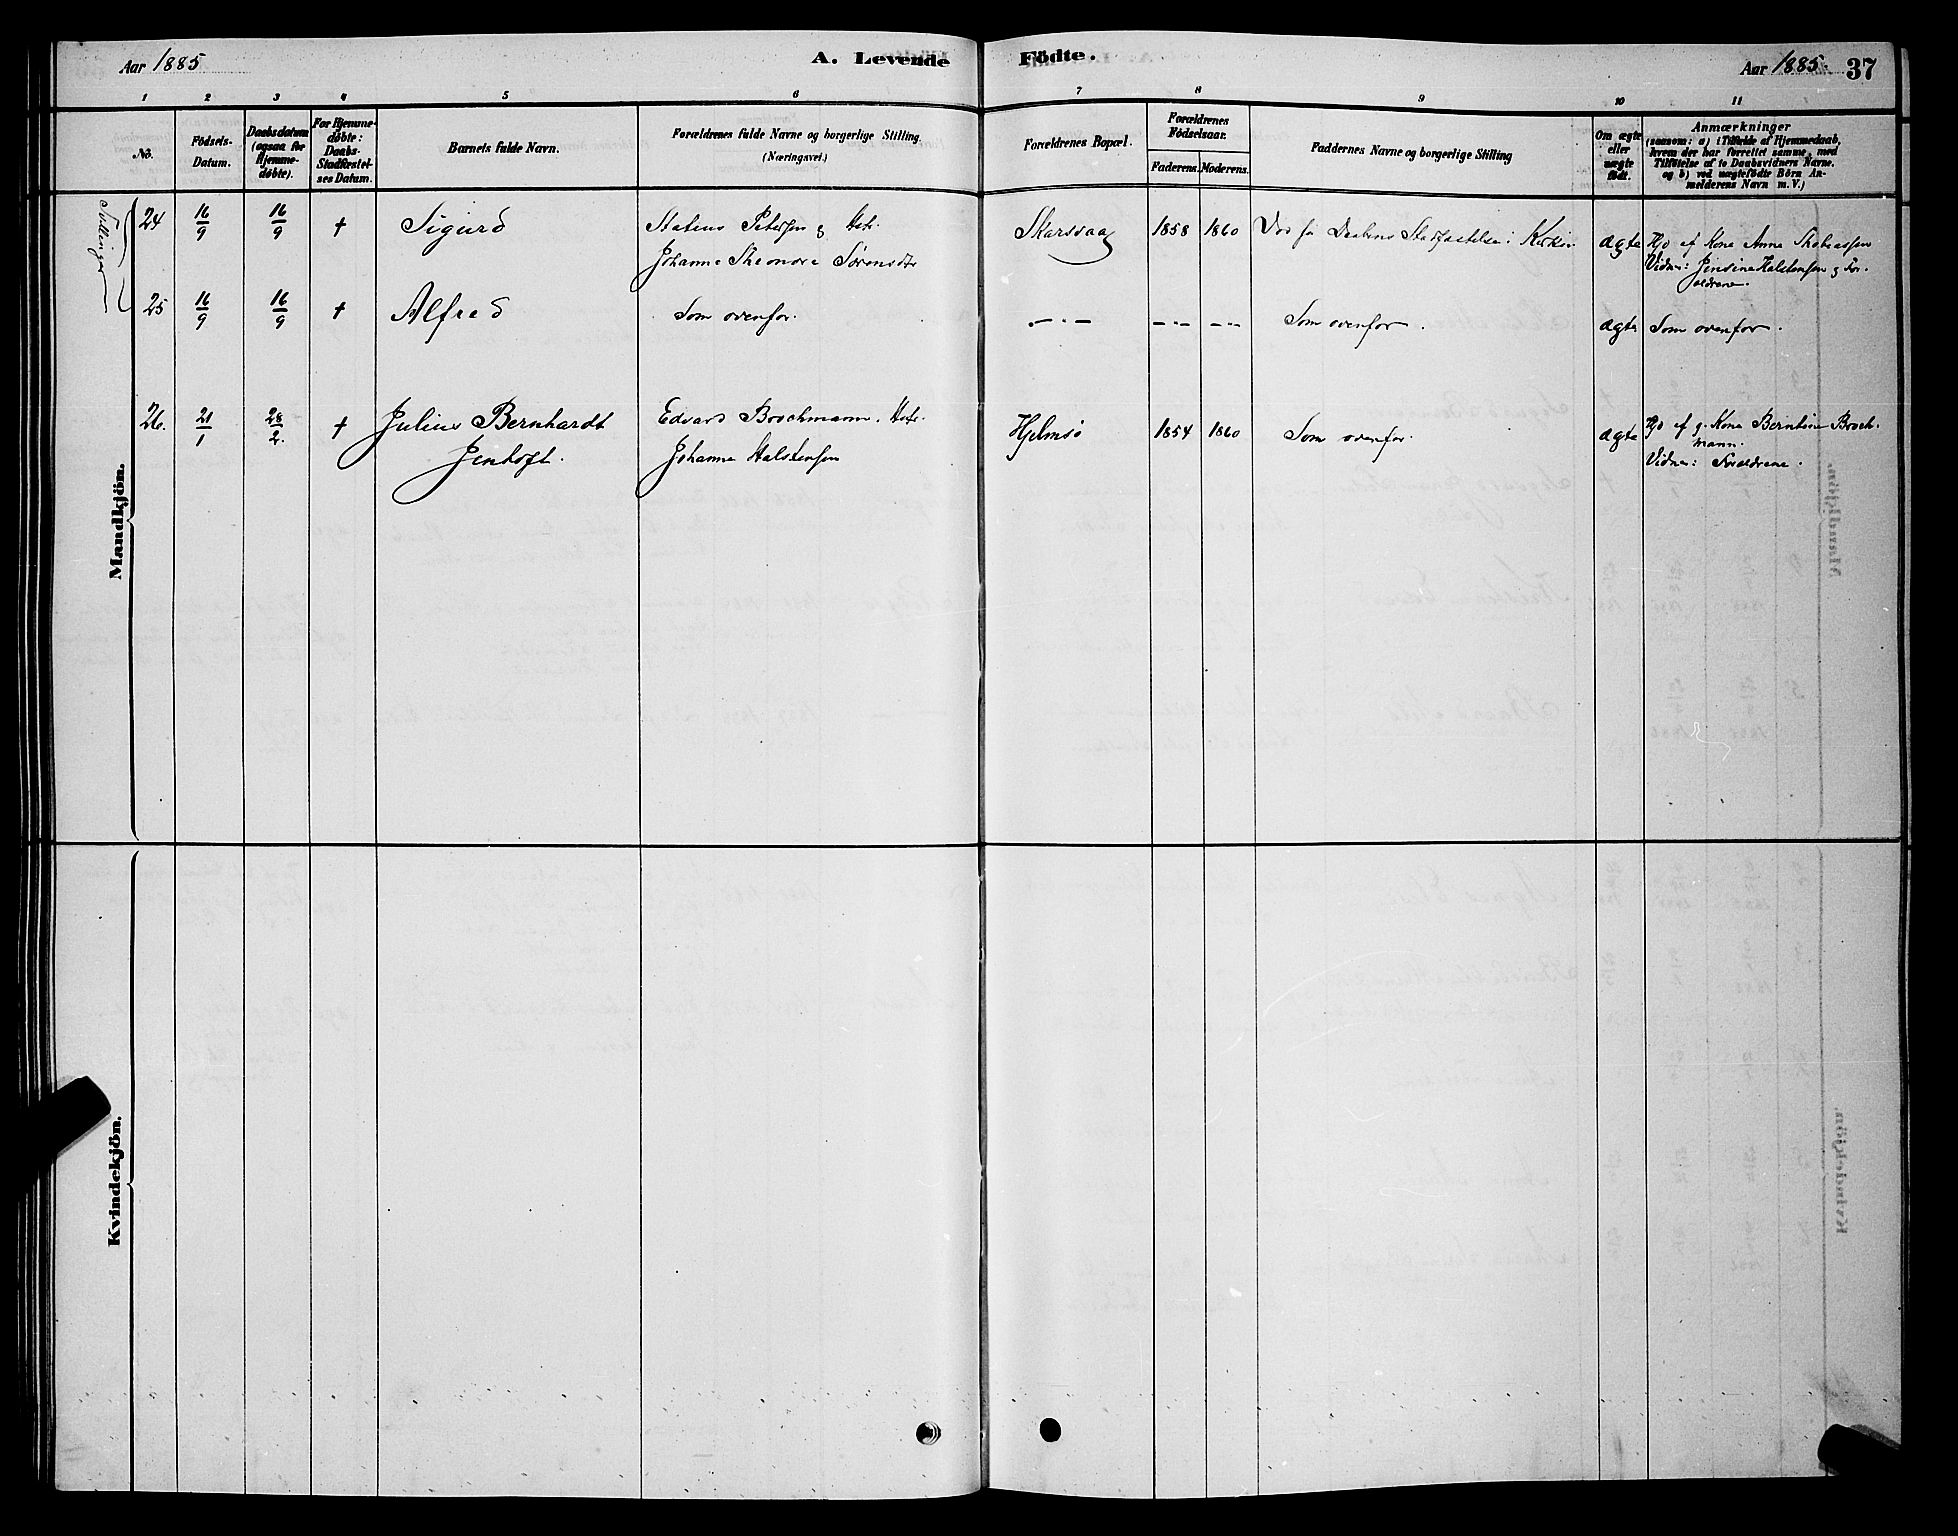 Aar 1885
A. Levende Födte.
Aar 1885. 37
1 2 3 4 5 6 7 8 9 10 11
No.
Födsels-
Datum.
Daabsdatum
(ogsaa for
Hjemme-
döbte).
For Hjemme-
döbte:
Daabs-
Stadfæstel-
ses Datum.
Barnets fulde Navn.
Forældrenes fulde Navne og borgerlige Stilling.
(Næringsvei.)
Forældrenes Bopæl.
Forældrenes
Födselsaar.
Faderens. Moderens.
Faddernes Navne og borgerlige Stilling
Om ægte
eller
uægte
födt.
Anmærkninger
(saasom: a) i Tilfælde af Hjemmedaab,
hvem der har forrettet samme, med
Tilföielse af to Daabsvidners Navne,
og b) ved uægtefödte Börn An-
melderens Navn m. V.)
Mandkjön.
Tvillinger
24 16/9 16/9 † Sigurd
Petersen g
Johanne Sörensdtr
Skarsvaag 1858 1860 Stadfæstelse i Kirken ægte
Hjd af Kona Anna
Vidner: Jensine Halstensen g For-
ældrene.
25 16/9 16/9 † Alfred Som ovenfor. —"— —"— —"— Som ovenfor. ægte Som ovenfor.
26. 21/1 28/2. † Julius Bernhardt
Jentoft.
Edvard Brochmann.
Johanne Halstensen
Hjelmsö 1854 1860 Som ovenfor. ægte
Hjd af g. Kone Berntine Broch-
mann.
Vidner: Forældrene.
Kvindekjön.